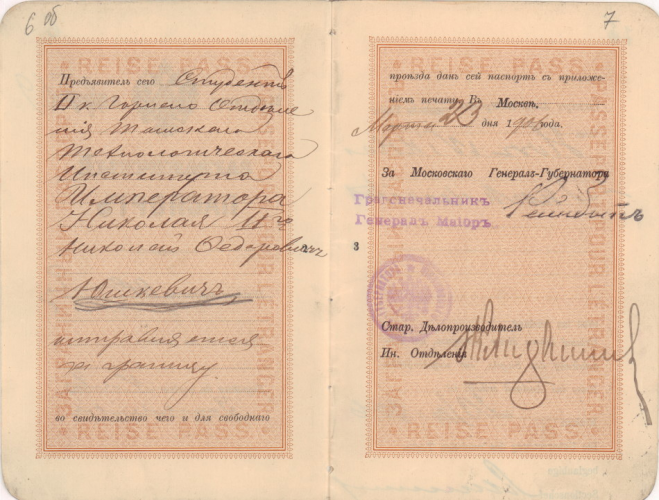 6 об
REISE PASS
ЗАГРАНИЧНЫЙ ПАСПОРТЪ
PASSEPORT POUR L'ÉTRANGER
Предъявитель сего Студентъ
II к. Горнаго Отдѣле
нія Томскаго
Технологическаго
Института
Императора
Николая II-го
Николай Ѳедоровичъ
Юшкевичъ
отправляется
за границу
во свидѣтельство чего и для свободнаго
REISE PASS
7
REISE PASS
ЗАГРАНИЧНЫЙ ПАСПОРТЪ
PASSEPORT POUR L'ÉTRANGER
проѣзда данъ сей паспортъ съ приложе-
ніемъ печати. Въ Москвѣ.
Марта 23 дня 190 года.
За Московскаго Генералъ-Губернатора
Градоначальникъ
Генералъ Маіоръ
Рейнботъ
3
Стар. Дѣлопроизводитель
Ин. Отдѣленія
REISE PASS